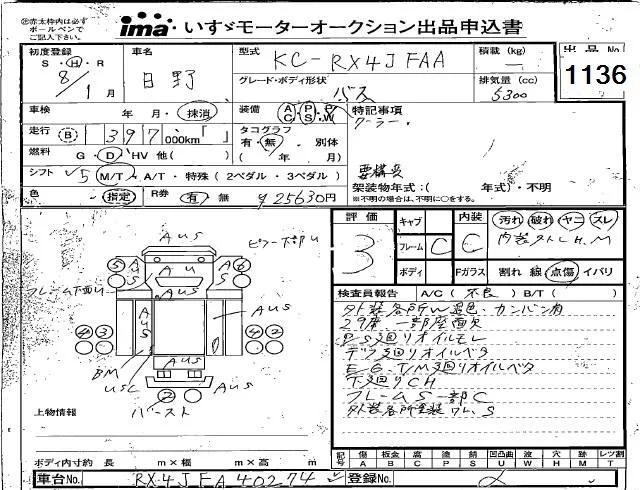 ㊟赤太枠内は必ず
ボールペンで
ご記入下さい。
ima いすゞモーターオークション出品申込書
初度登録 車名 型式 KC-RX4JFAA 積載 (kg) 出品No.
S・H・R 8/1月 日野 グレード・ボディ形状 バス 排気量 (cc) 5300 1136
車検 年 月・抹消 装備 A/C P/S P/W 特記事項
走行 B 397,000km タコグラフ 有・無 別体 クーラー.
燃料 G・D・HV 他( ) ( 年 月)
シフト 5 M/T・A/T・特殊 (2ペダル・3ペダル) 架装物年式:( 年式)・不明
※不明の場合は、不明に○をする。
色 指定 R券 有 無 ¥25630円
評価 3 キャブ 内装 C 汚れ 破れ ヤニ スレ
フレーム C
ボディ Fガラス 割れ 線 点傷 イバリ
検査員報告 A/C( 不良 ) B/T( )
外装各所W退色. カンバン有
29席 一部座面欠
P/S廻りオイルモレ
デフ廻りオイルベタ
E/G. T/M廻りオイルベタ
下廻りCH
フレームS一部C
外装各所塗装ワレ、S
AUS ピラー下部U
5 AU 6
AUS
フレーム下廻りU
AUS AUS
4 3 4 2
BM
USC AUS AUS
2
バースト
上物情報
ボディ内寸約 長 m×幅 m×高 m
記号 傷A 板金B 腐C 塗P 錆S 凹凸曲U 波W 穴H 跡M レツ割T
車台No. RX4JFA40274 登録No.